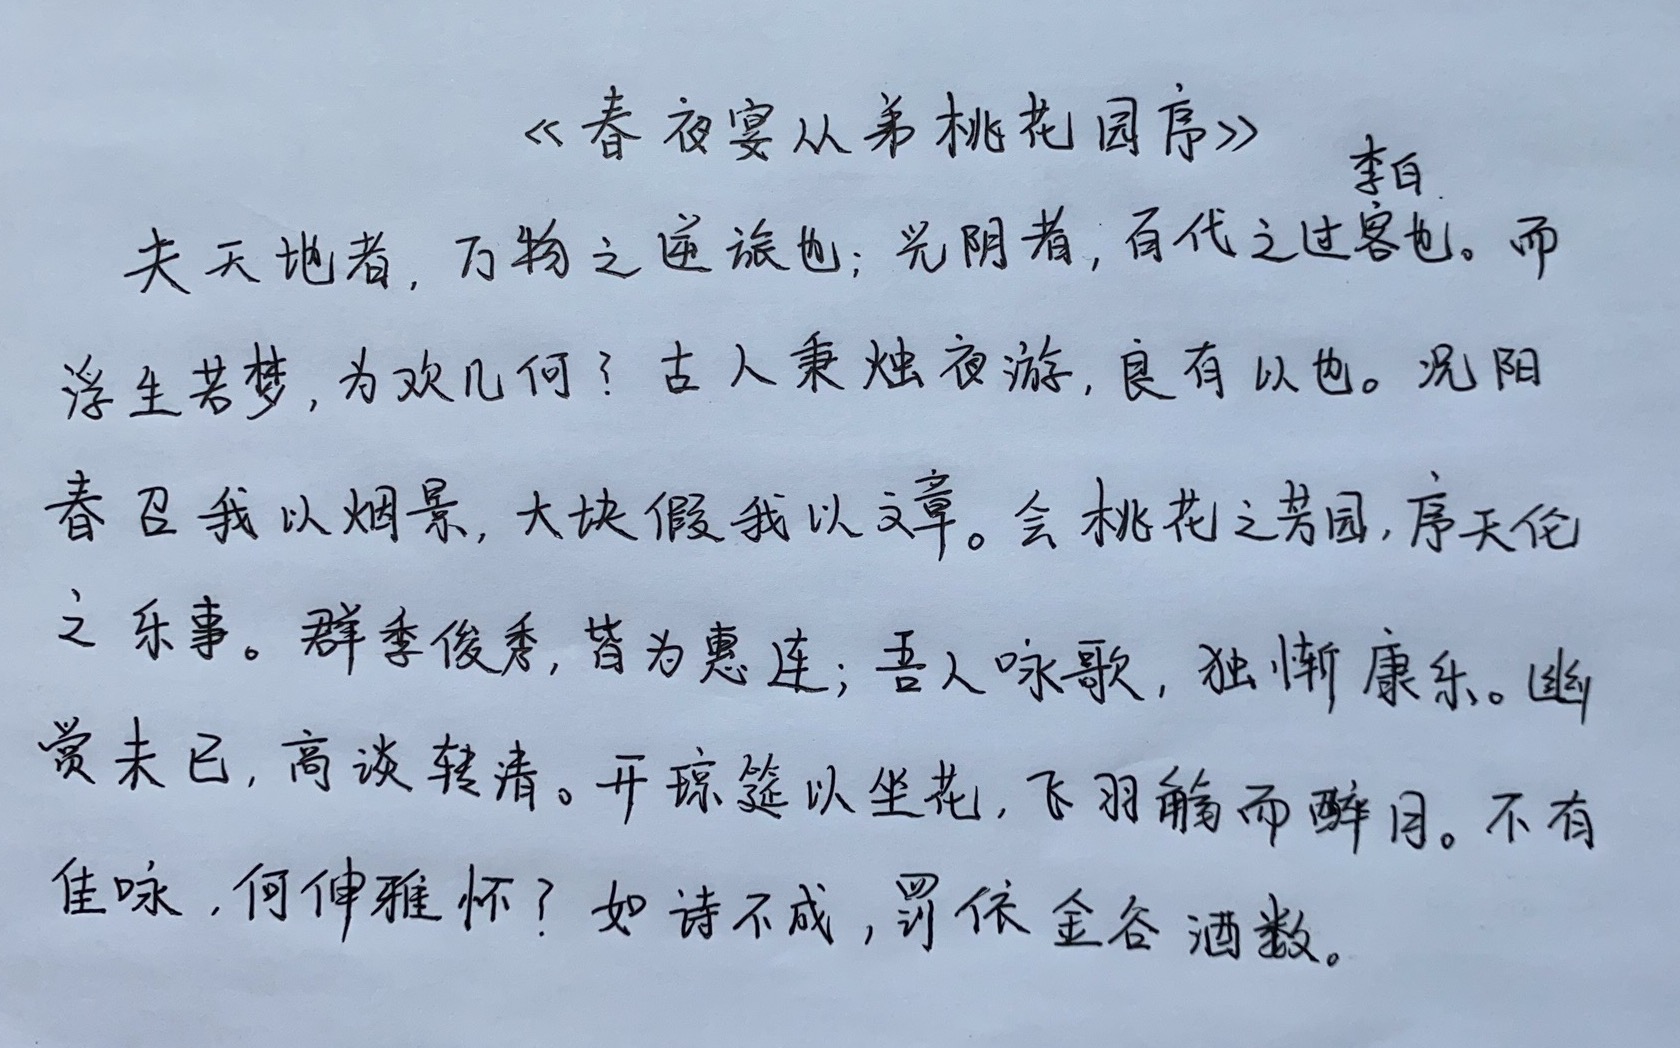 《春夜宴从弟桃花园序》
李白
夫天地者，万物之逆旅也；光阴者，百代之过客也。而
浮生若梦，为欢几何？古人秉烛夜游，良有以也。况阳
春召我以烟景，大块假我以文章。会桃花之芳园，序天伦
之乐事。群季俊秀，皆为惠连；吾人咏歌，独惭康乐。幽
赏未已，高谈转清。开琼筵以坐花，飞羽觞而醉月。不有
佳咏，何伸雅怀？如诗不成，罚依金谷酒数。